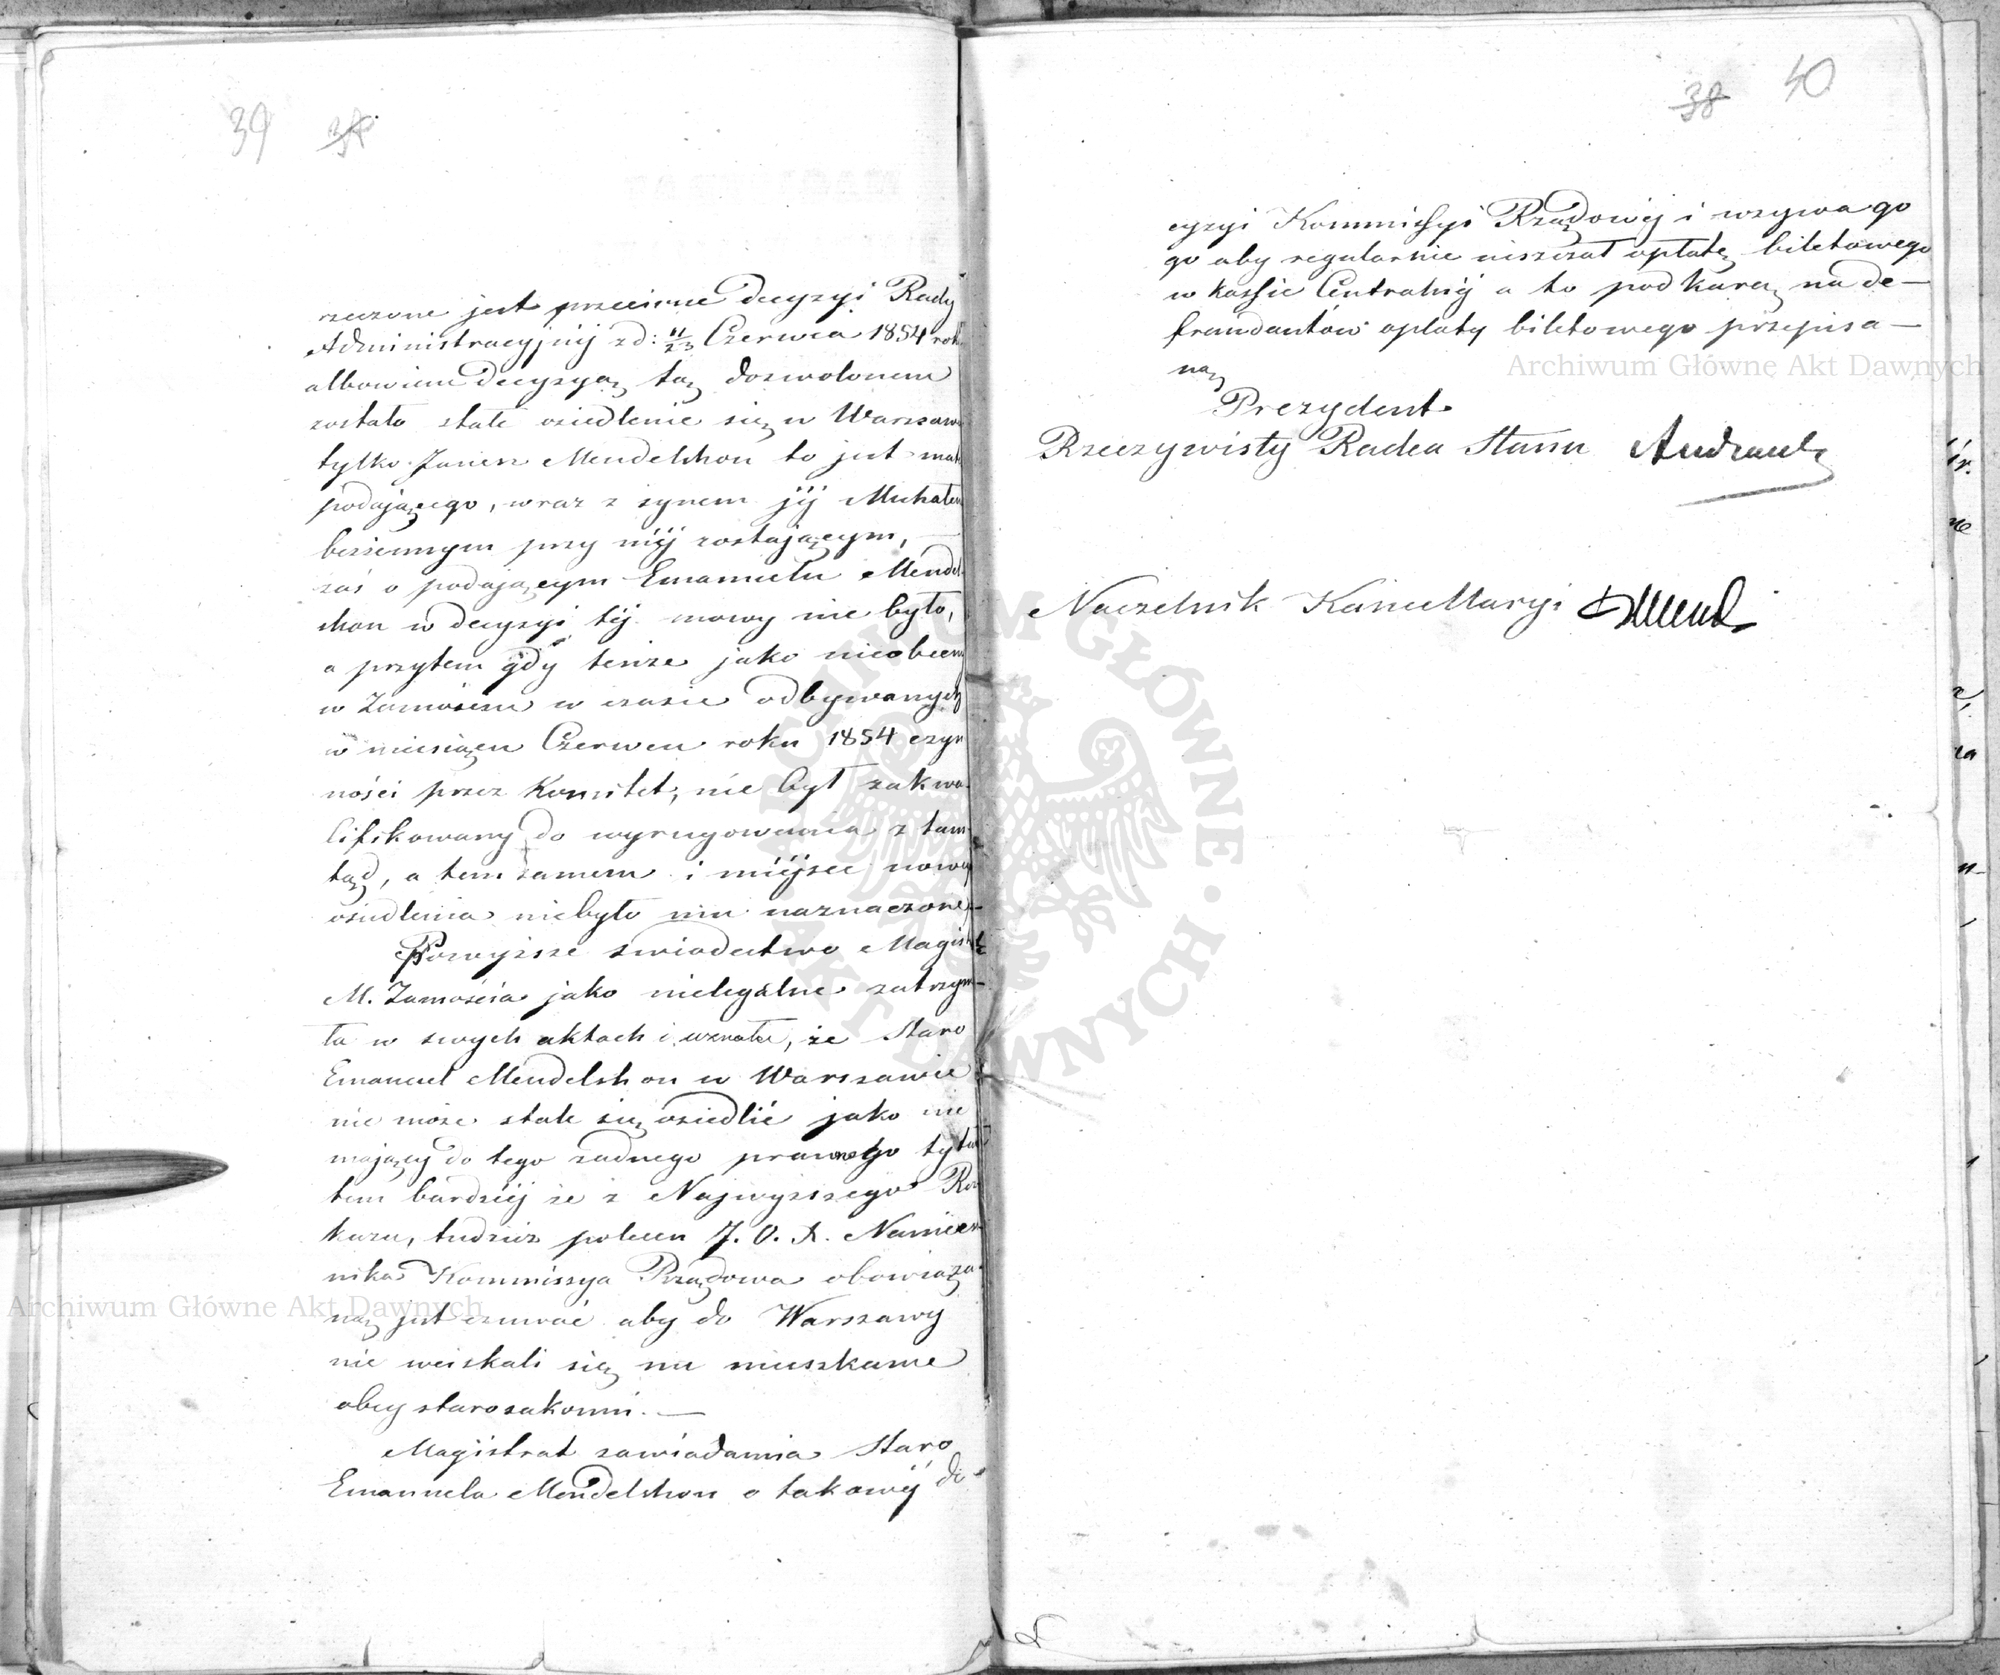 39 38
rzeczone jest przeciwne decyzyi Rady
Administracyjnéj z d: 11/23 Czerwca 1854 roku
albowiem decyzyą tą dozwolonem
zostało stałe osiedlenie się w Warszawie
tylko Mendelshon to jest matce
podającego, wraz z synem jéj Michałem
bezżennym przy niéj zostającym, —
zaś o podającym Emanuelu Mendel-
shon w decyzyi téj mowy nie było,
a przytem gdy tenże jako nieobecny
w Zamościu w czasie odbywanych
w miesiącu Czerwcu roku 1854 czyn
ności przez Komitet, nie był zakwa-
lifikowany do wyrugowania z tam-
tąd, a tem samem i miéjsce nowego
osiedlenia niebyło mu naznaczone,—
Powyższe świadectwo Magistratu
M. Zamościa jako nielegalne zatrzyma-
ła w swych aktach i uznała, że Staro
Emanuel Mendelshon w Warszawie
nie może stale się osiedlić jako nie
mający do tego żadnego prawnego tytułu
tem bardziéj że z Najwyższego Roz
kazu, tudzież polecen J. O. X. Namiest-
nika Kommissya Rządowa obowiąza-
ną jest czuwać aby do Warszawy
nie wciskali się na mieszkanie
obcy starozakonni. —
Magistrat zawiadamia Staro
Emanuela Mendelshon o takowéj de-
38 40
cyzyi Kommissyi Rządowéj i wzywa go
go aby regularnie uiszczał opłatę biletowego
w Kassie Centralnéj a to pod karą na de—
fraudantów opłaty biletowego przepisa—
ną
Prezydent
Rzeczywisty Radca Stanu Andrault
Naczelnik Kancellaryi
Archiwum Główne Akt Dawnych
Archiwum Główne Akt Dawnych
ARCHIWUM GŁÓWNE · AKT DAWNYCH ·